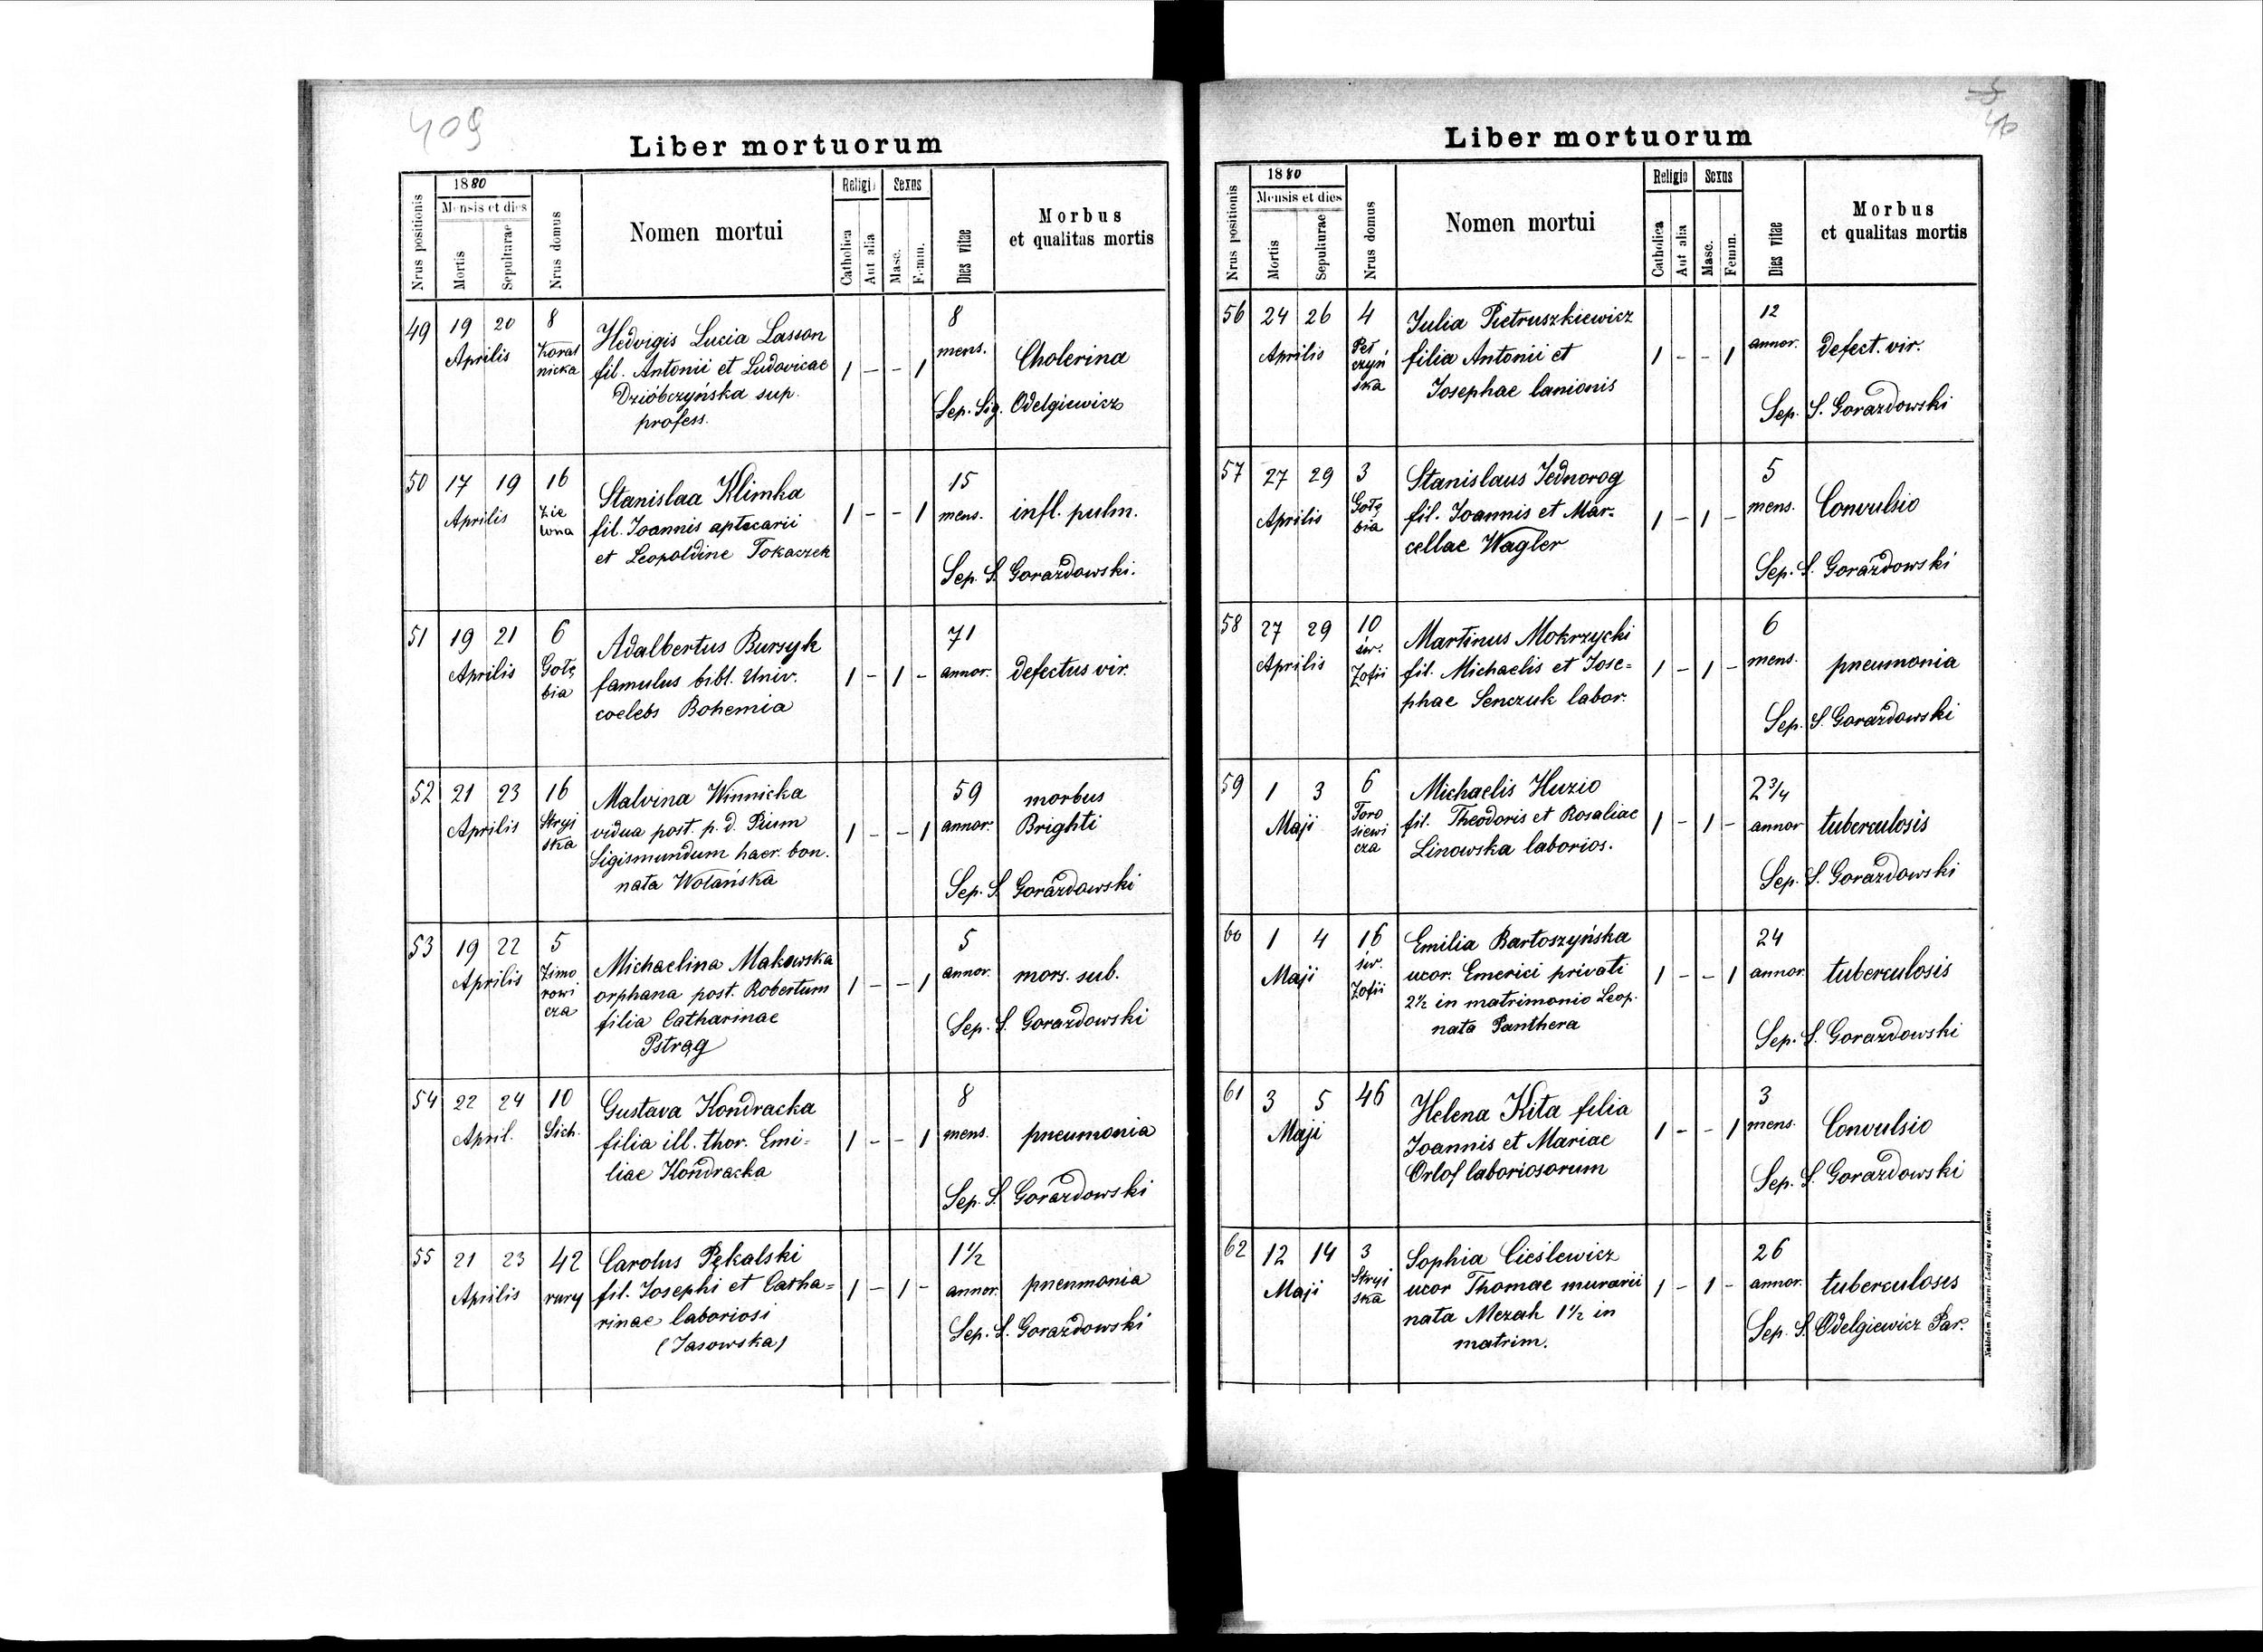 409
Liber mortuorum
Nrus positionis
1880
Mensis et dies
Mortis
Sepulturae
Nrus domus
Nomen mortui
Religio
Catholica
Aut alia
Sexus
Masc.
Femin.
Dies vitae
Morbus
et qualitas mortis
49 19 20 8 Hedvigis Lucia Lasson 8
Aprilis Koral nicka fil. Antonii et Ludovicae 1 - - 1 mens. Cholerina
Dzióbczyńska sup. Sep. Sig. Odelgiewicz
profess.
50 17 19 16 Stanislaa Klimka 15
Aprilis Zie lona fil. Joannis aptecarii 1 - - 1 mens. infl. pulm.
et Leopoldine Tokaczek
Sep. S. Gorazdowski.
51 19 21 6 Adalbertus Bursyk 71
Aprilis Gołę bia famulus bibl. Univ. 1 - 1 - annor. defectus vir.
coelebs Bohemia
52 21 23 16 Malvina Winnicka 59 morbus
Aprilis Stryj ska vidua post. p. d. Pium 1 - - 1 annor. Brighti
Sigismundum haer. bon.
nata Wolańska Sep. S. Gorazdowski
53 19 22 5 Michaelina Makowska 5
Aprilis Zimo rowi cza orphana post. Robertum 1 - - 1 annor. mors. sub.
filia Catharinae Sep. S. Gorazdowski
Pstrąg
54 22 24 10 Gustava Kondracka 8
April. Sich. filia ill. thor. Emi= 1 - - 1 mens. pneumonia
liae Kondracka
Sep. S. Gorazdowski
55 21 23 42 Carolus Pękalski 1½
Aprilis rury fil. Josephi et Catha= 1 - 1 - annor. pneumonia
rinae laboriosi Sep. S. Gorazdowski
(Jasowska)
Liber mortuorum
Nrus positionis
1880
Mensis et dies
Mortis
Sepulturae
Nrus domus
Nomen mortui
Religio
Catholica
Aut alia
Sexus
Masc.
Femin.
Dies vitae
Morbus
et qualitas mortis
56 24 26 4 Julia Pietruszkiewicz 12
Aprilis Peł czyń ska filia Antonii et 1 - - 1 annor. defect. vir.
Josephae lanionis Sep. S. Gorazdowski
57 27 29 3 Stanislaus Jednorog 5
Aprilis Gołę bia fil. Joannis et Mar= 1 - 1 - mens. Convulsio
cellae Wagler Sep. S. Gorazdowski
58 27 29 10 Martinus Mokrzycki 6
Aprilis św. Zofii fil. Michaelis et Jose= 1 - 1 - mens. pneumonia
phae Senczuk labor. Sep. S. Gorazdowski
59 1 3 6 Michaelis Huzio 2 3/4
Maji Toro siewi cza fil. Theodoris et Rosaliae 1 - 1 - annor tuberculosis
Linowska laborios. Sep. S. Gorazdowski
60 1 4 16 Emilia Bartoszyńska 24
Maji św. Zofii ucor. Emerici privati 1 - - 1 annor. tuberculosis
2½ in matrimonio Leop.
nata Panthera Sep. S. Gorazdowski
61 3 5 46 Helena Kita filia 3
Maji Joannis et Mariae 1 - - 1 mens. Convulsio
Orlof laboriosorum Sep. S. Gorazdowski
62 12 14 3 Sophia Cieślewicz 26
Maji Stryj ska ucor Thomae murarii 1 - 1 - annor. tuberculoses
nata Mezah 1½ in Sep. S. Odelgiewicz Par.
matrim.